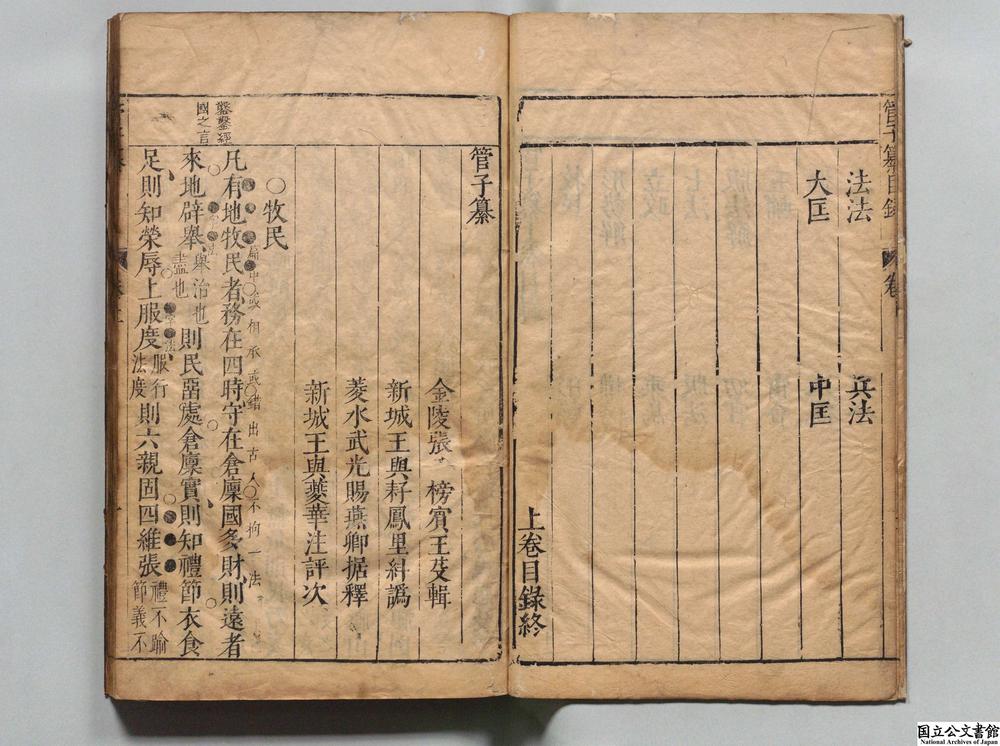 管子纂目錄
卷
法法
兵法
大匡
中匡
上卷目錄終
管子纂
金陵張榜賓王父輯
新城王與籽鳳里糾譌
菱水武光賜燕卿据釋
新城王與夔華注評次
○牧民
鑿鑿經
國之言
凡有地牧民者務在四時守在倉廩國多財則遠者
或相承或錯出古人不拘一法
來地辟舉舉治也盡也則民留處倉廩實則知禮節衣食
足則知榮辱上服度服行法度則六親固四維張禮不踰節義不
国立公文書館
National Archives of Japan